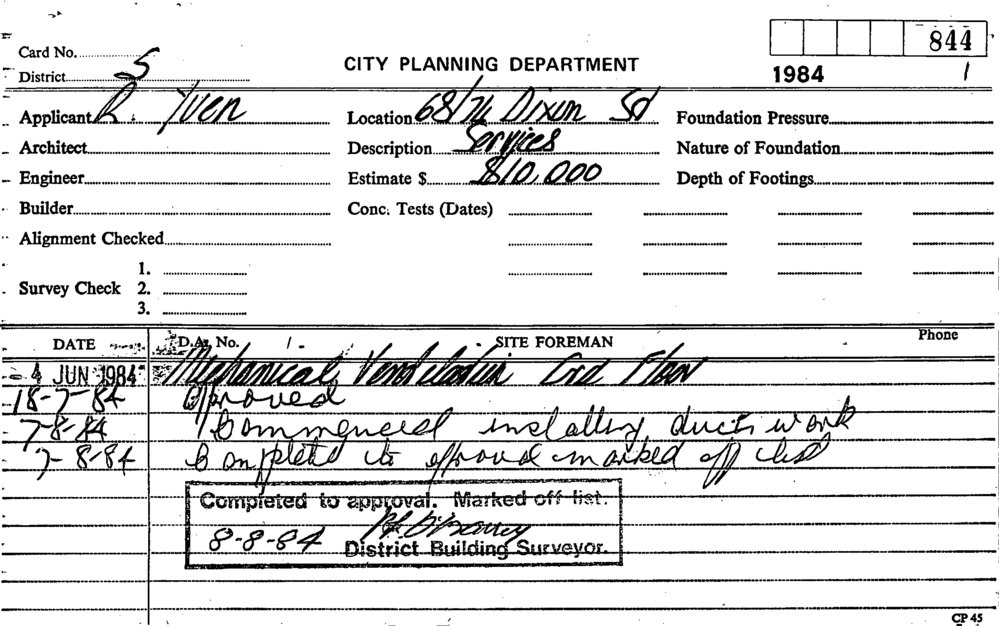 Card No.
844
District 5
CITY PLANNING DEPARTMENT
1984 1
Applicant R. Yuen
Location 68/74 Dixon St
Foundation Pressure
Architect
Description Services
Nature of Foundation
Engineer
Estimate $ $10,000
Depth of Footings
Builder
Conc. Tests (Dates)
Alignment Checked
Survey Check
1.
2.
3.
DATE
D.A. No.
SITE FOREMAN
Phone
- 4 JUN 1984 Mechanical Ventilation
18-7-84 Approved
7-8-84 Commenced installing duct work
7-8-84 Completed to approval marked off list
Completed to approval. Marked off list.
8-8-84
District Building Surveyor.
CP 45